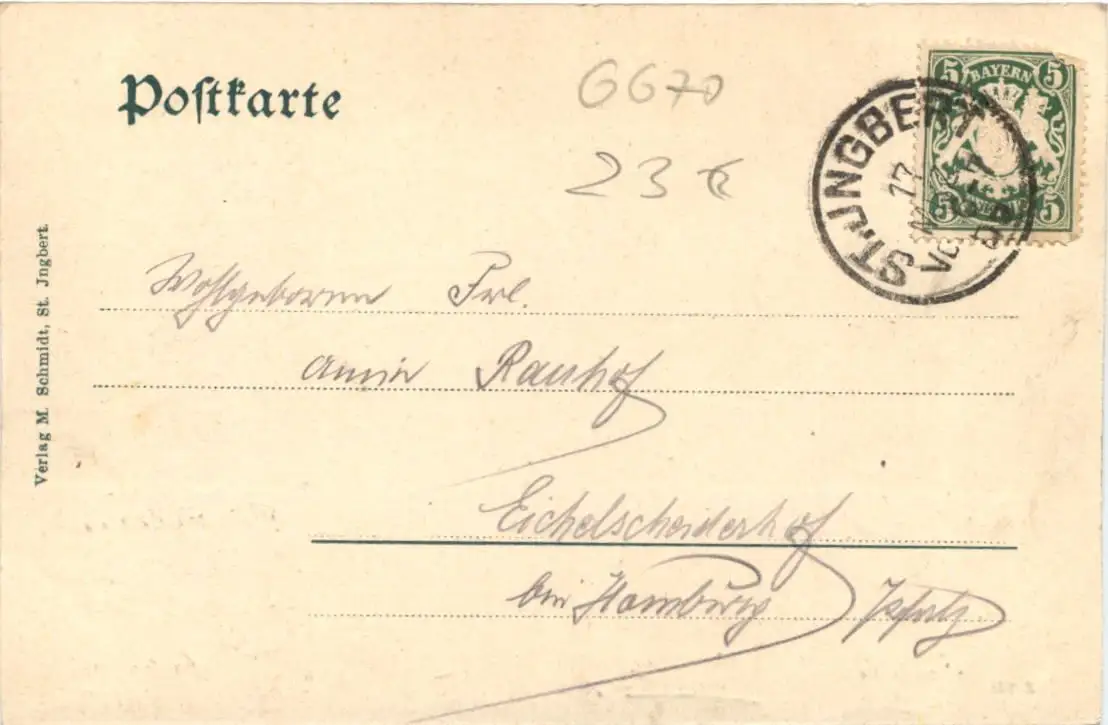 Postkarte
6670
23 €
5 BAYERN 5
5 5
ST. JNGBERT
17
Verlag M. Schmidt, St. Jngbert.
Wohlgeboren Frl.
Rauhof
Eichelscheiderhof
bei Homburg Pfalz